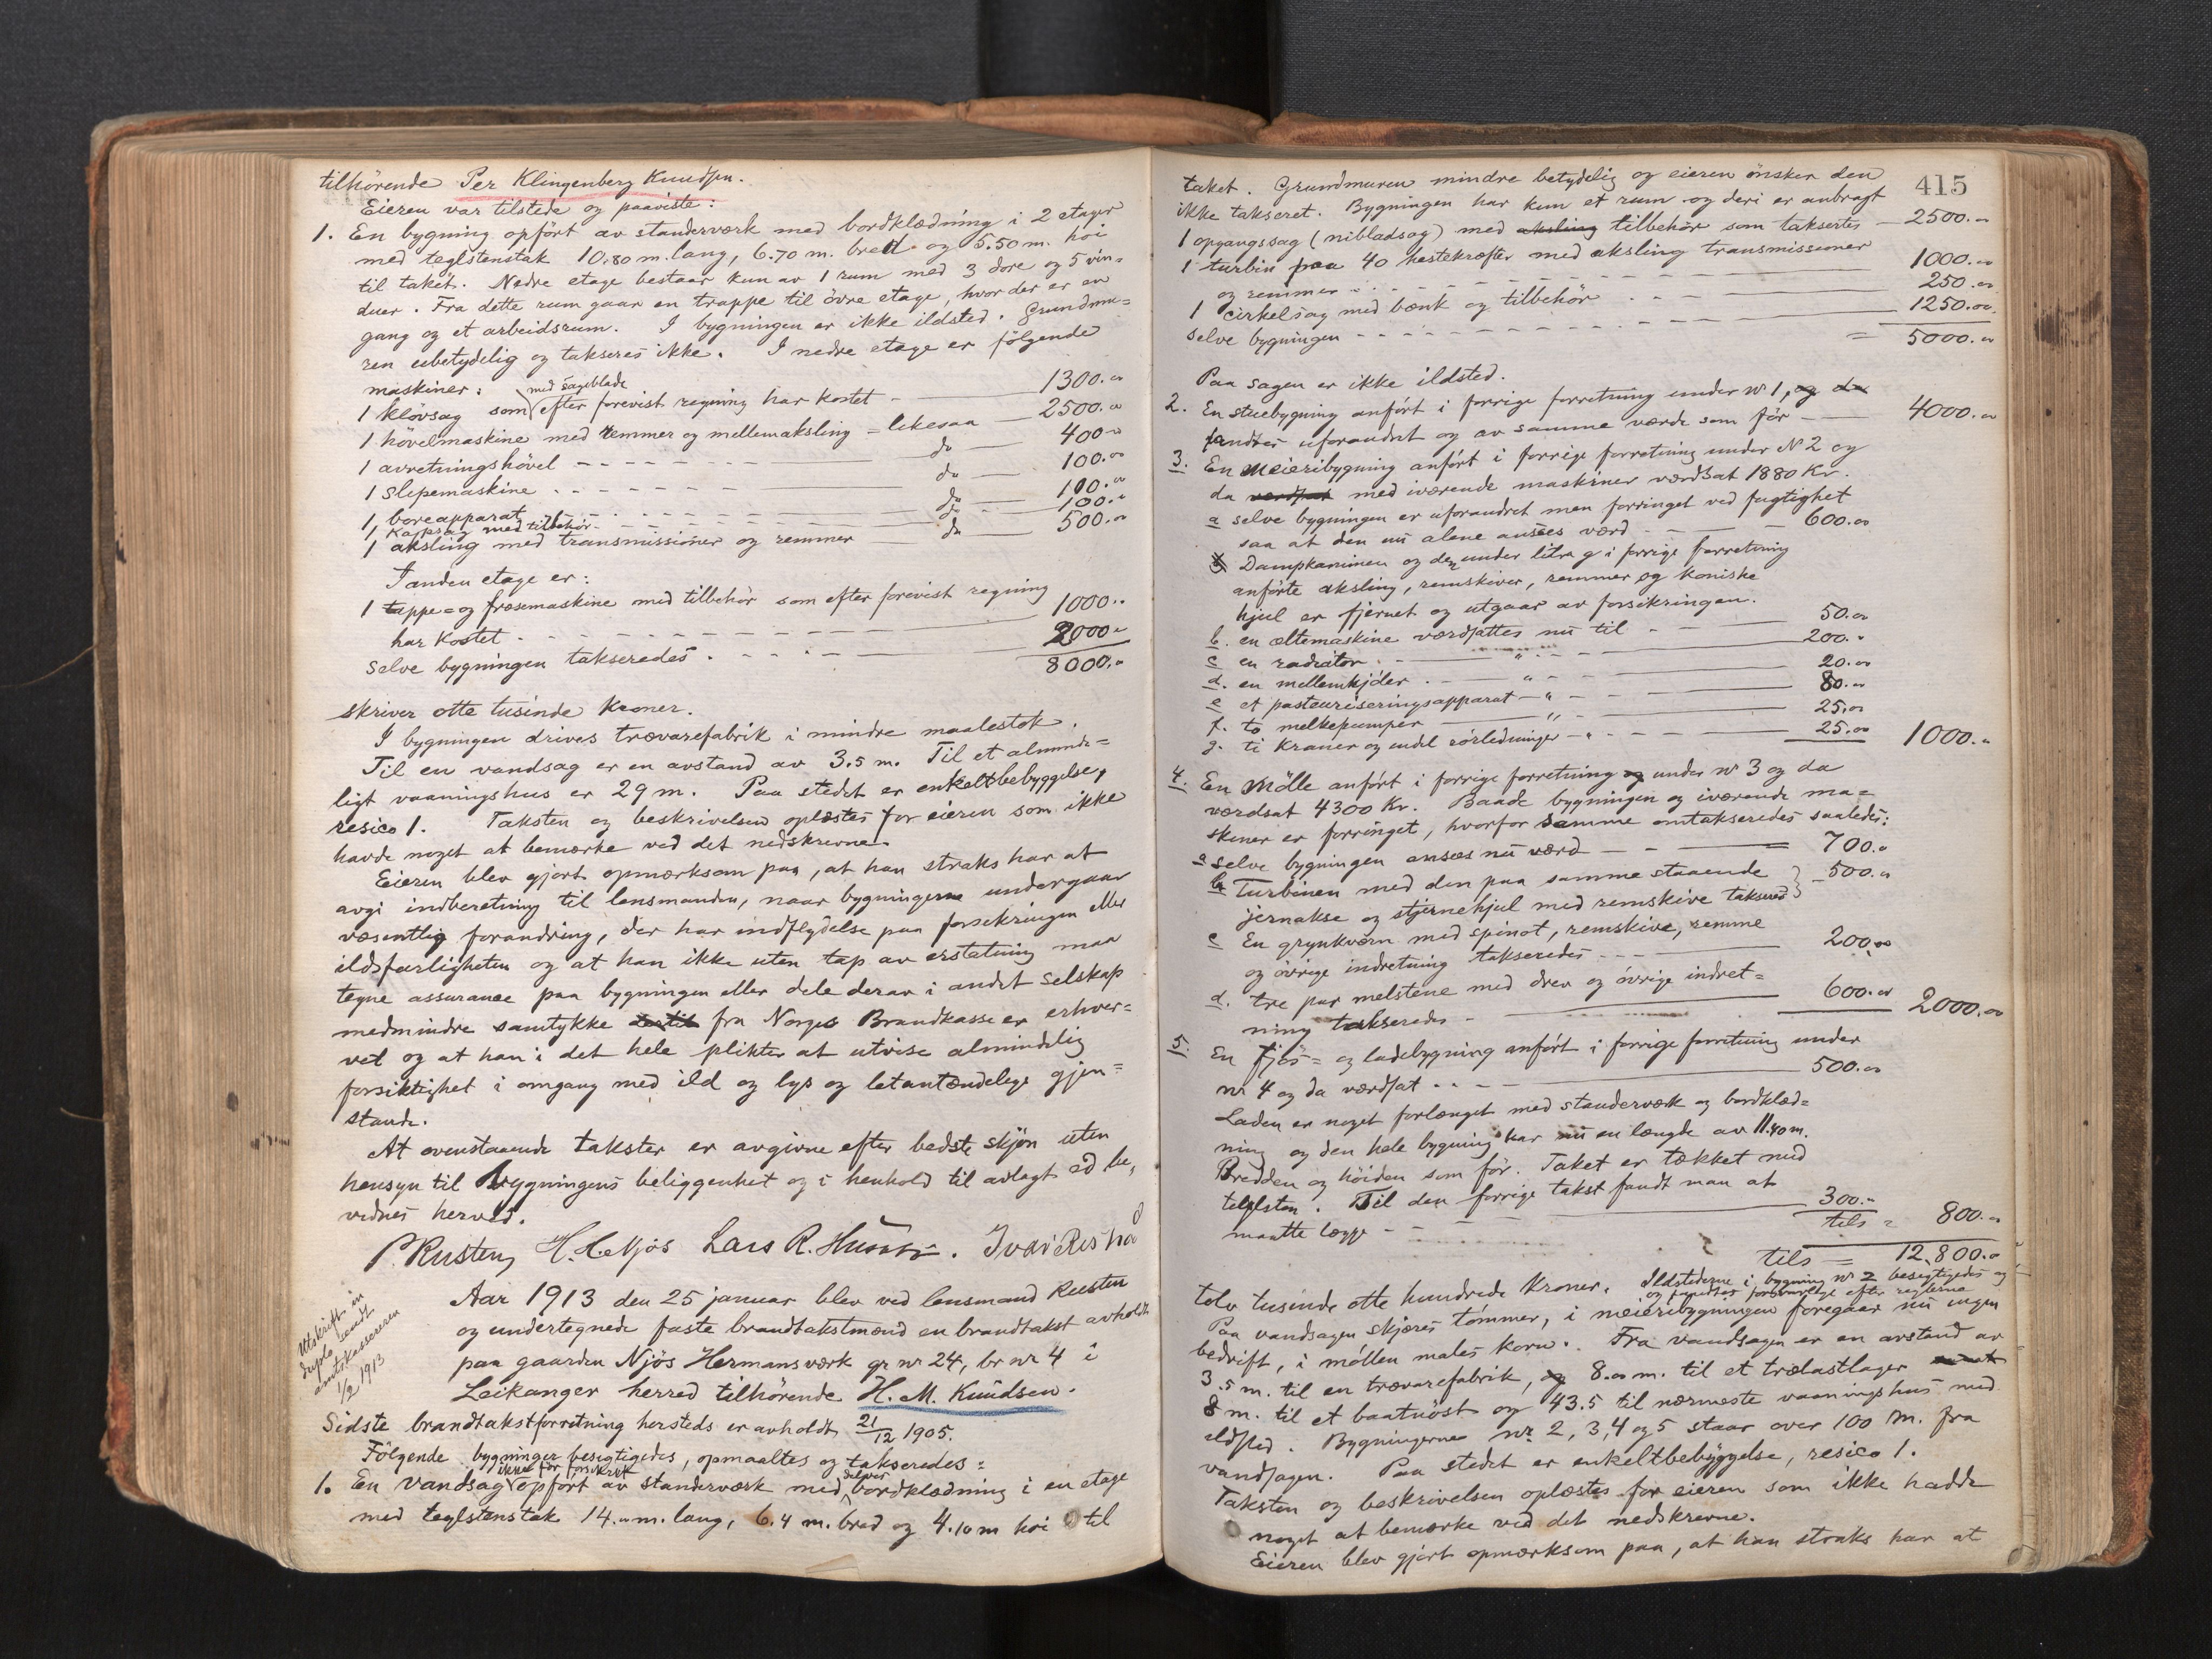 tilhörende Per Klingenberg Knudsen.
Eieren var tilstede og paaviste:
1. En bygning opfört av stenderværk med bordklædning i 2 etager
med teglstenstak 10.80 m. lang, 6.70 m. bred og 5.50 m. höi
til taket. Nedre etage bestaar kun av 1 rum med 3 döre og 5 vin=
duer. Fra dette rum gaar en trappe til övre etage, hvor der er en
gang og et arbeidsrum. I bygningen er ikke ildsted. Grundmu=
ren ubetydelig og takseres ikke. I nedre etage er fölgende
maskiner:
med sagblade
1 klövsag som efter forevist regning har kostet - 1300.00
1 hövelmaskine med remmer og mellemaksling = likesaa 2500.00
1 avretningshövel - - - do 400.00
1 slipemaskine - - - do 100.00
1 boreapparat - - - do 100.00
1 kapsag med tilbehör - - - do 100.00
1 aksling med transmissioner og remmer do 500.00
I anden etage er:
1 tappe= og fræsemaskine med tilbehör som efter forevist regning
har kostet - - - 1000.00
selve bygningen takseredes - - - 2000.00
8000.00
skriver otte tusinde kroner.
I bygningen drives trævarefabrik i mindre maalestok.
Til en vandsag er en avstand av 3.5 m. Til et alminde=
ligt vaaningshus er 29 m. Paa stedet er enkeltbebyggelse,
resico 1. Taksten og beskrivelsen oplæstes for eieren som ikke
havde noget at bemærke ved det nedskrevne.
Eieren blev gjort opmærksom paa, at han straks har at
avgi indberetning til lensmanden, naar bygningerne undergaar
væsentlig forandring, der har indflydelse paa forsikringen eller
ildsfarligheten og at han ikke uten tap av erstatning maa
tegne assurance paa bygningen eller dele derav i andet selskap
medmindre samtykke dertil fra Norges Brandkasse er erhver=
vet og at han i det hele plikter at utvise almindelig
forsiktighet i omgang med ild og lys og letantændelige gjen=
stande.
At ovenstaaende takster er avgivne efter bedste skjön uten
hensyn til bygningens beliggenhet og i henhold til avlagt ed be=
vidnes herved.
P. Rusten, H. H. Njös Lars R. Husabö. Ivar Restad
Utskrift in
duplo sendt
amtskassereren
1/2 1913
Aar 1913 den 25 januar blev ved lensmand Rusten
og undertegnede faste brandtakstmænd en brandtakst avholdt
paa gaarden Njös Hermansværk gr nr 24, br nr 4 i
Leikanger herred tilhörende H. M. Knudsen.
Sidste brandtakstforretning hersteds er avholdt 21/12 1905.
Fölgende bygninger besigtigedes, opmaaltes og takseredes:
ikke för forsikret
1. En Vandsag opfört av stenderværk med bordklædning i en etage
med teglstenstak 14.00 m. lang, 6.4 m. bred og 4.10 m höi til
415
taket. Grundmuren mindre betydelig og eieren önsker den
ikke takseret. Bygningen har kun et rum og deri er anbragt
1 opgangssag (nibladsag) med aksling tilbehör som taksertes - 2500.00
1 turbin paa 40 hestekræfter med aksling transmissioner
og remmer - - - 1000.00
1 cirkelsag med bænk og tilbehör - - - 250.00
selve bygningen - - - 1250.00
= 5000.00
Paa sagen er ikke ildsted.
2. En stuebygning anfört i forrige forretning under nr 1, og da
fandtes uforandret og av samme værde som för - 4000.00
3. En meieribygning anfört i forrige forretning under N 2 og
da værdsat med iværende maskiner værdsat 1880 Kr.
a selve bygningen er uforandret men forringet ved fugtighet
saa at den nu alene ansees værd - 600.00
Dampkaminen og den under litra g i forrige forretning
anförte aksling, remskiver, remmer og koniske
hjul er fjernet og utgaar av forsikringen.
b. en æltemaskine værdsattes nu til - 50.00
c en radiator - " - 200.00
d. en mellemkjöler - " - 20.00
e et pasteuriseringsapparat - " - 80.00
f. to melkepumper - " - 25.00
g. ti kraner og endel rörledninger - " - 25.00 1000.00
4. En Mölle anfört i forrige forretning og under nr 3 og da
værdsat 4300 Kr. Baade bygningen og iværende ma=
skiner er forringet, hvorfor samme omtakseredes saaledes:
a selve bygningen ansees nu værd - 700.00
b. Turbinen med den paa samme staaende
jernakse og stjernehjul med remskive takseres } 500.00
c En grynkværn med spinot, remskive, remme
og övrige indretning takseredes - 200.00
d. tre par melstene med drev og övrige indret=
ning takseredes - 600.00 2000.00
5. En fjös= og ladebygning anfört i forrige forretning under
nr 4 og da værdsat - - - 500.00
Laden er noget forlænget med stenderværk og bordklæd=
ning og den hele bygning har nu en længde av 11.40 m.
Bredden og höiden som för. Taket er tækket med
teglsten. Til den forrige takst fandt man at
maatte lægge - - - 300.00
tils = 800.00
tils = 12,800.00
tolv tusinde otte hundrede kroner. Ildstederne i bygning nr 2 besigtigedes og
og fandtes forsvarlige efter reglerne
Paa vandsagen skjæres tömmer, i meieribygningen foregaar nu ingen
bedrift, i möllen males korn. Fra vandsagen er en avstand av
3.5 m. til en trævarefabrik, og 8.00 m. til et trælastlager
8 m. til et baatnöst og 43.5 til nærmeste vaaningshus med
ildsted. Bygningerne nr. 2, 3, 4 og 5 staar over 100 m. fra
vandsagen. Paa stedet er enkeltbebyggelse, resico 1.
Taksten og beskrivelsen oplæstes for eieren som ikke hadde
noget at bemærke ved det nedskrevne.
Eieren blev gjort opmærksom paa, at han straks har at